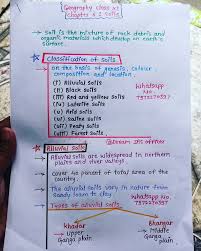 Geography class XI
Chapter 6 : Soils
→ Soil is the mixture of rock debris and
organic materials which develop on earth's
surface.
* Classification of Soils
→ On the basis of genesis, colour
composition and location.
(i) Alluvial Soils
(ii) Black soils
(iii) Red and Yellow soils
(iv) Laterite soils
(v) Arid soils
(vi) Saline soils
(vii) Peaty soils
(viii) Forest soils.
Whatsapp
No.
* Alluvial Soils
→ Alluvial Soils are widespread in northern
plains and river valleys.
→ cover 40 percent of total area of the
country.
→ The alluvial soils vary in nature from
sandy loam to clay.
Types of alluvial soils
Whatsapp
No.
Khadar
→ Upper
Ganga plain
Bhangar
→ Middle
Ganga plain